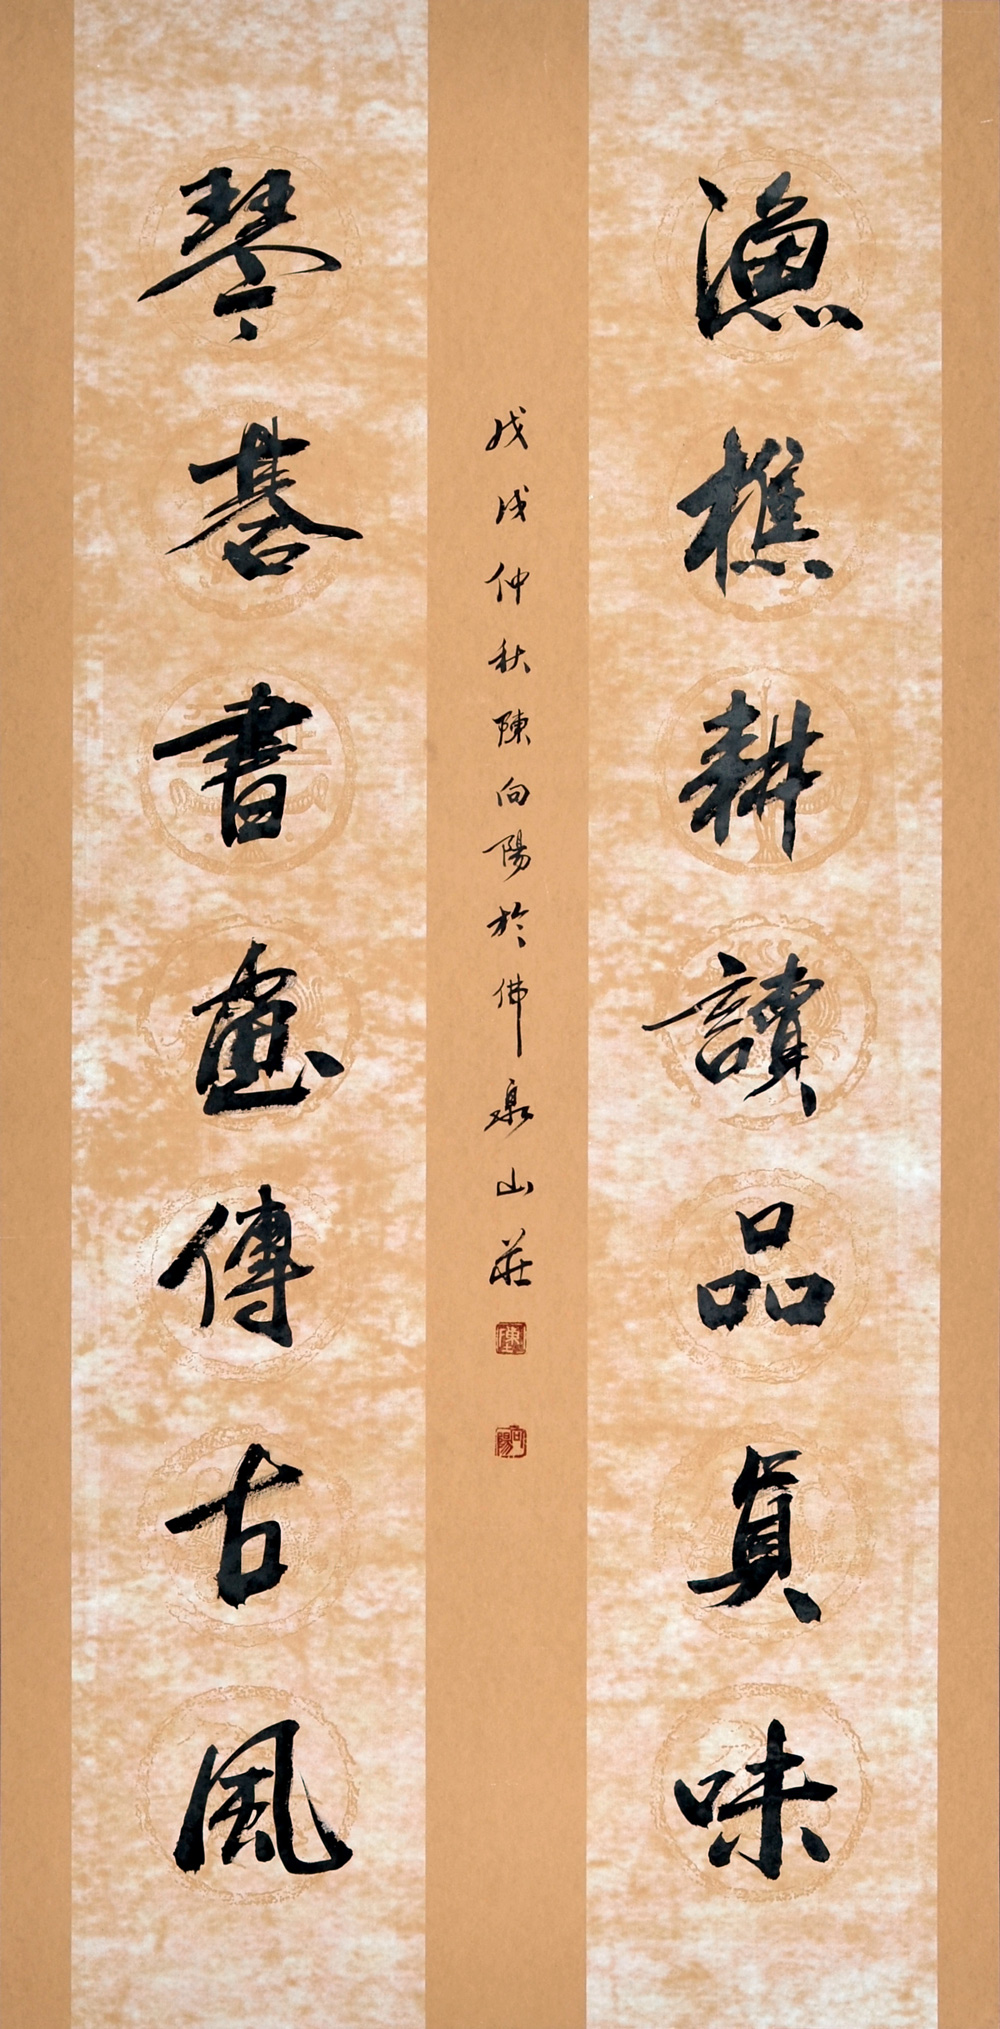 漁樵耕讀品真味
琴棊書畫傳古風
戊戌仲秋陳向陽於佛泉山莊
陳
向陽